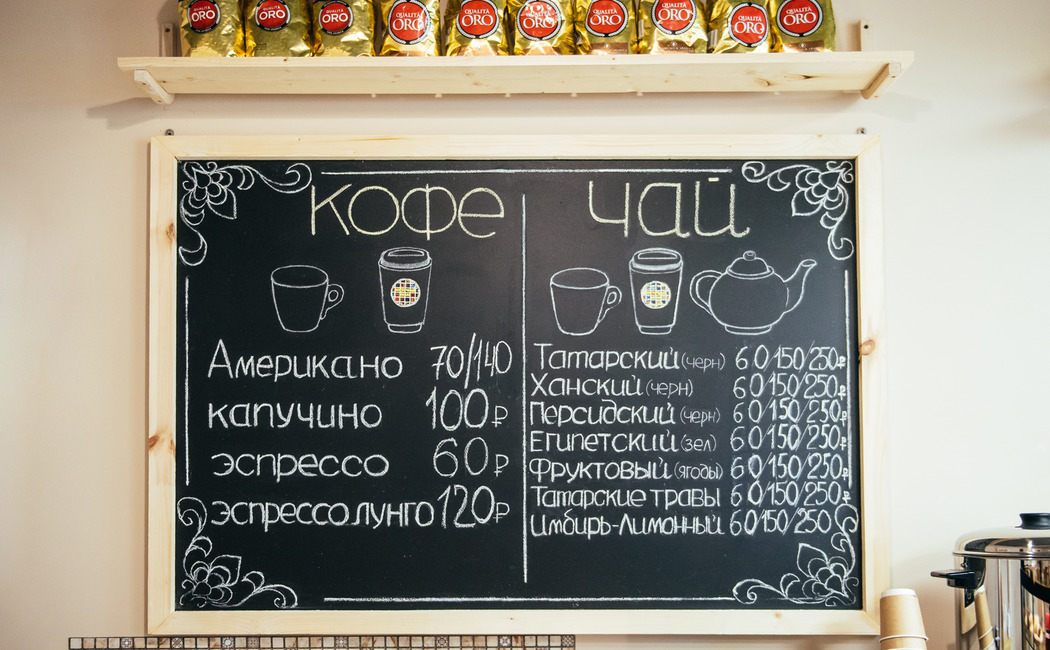 QUALITÀ ORO
QUALITÀ ORO
QUALITÀ ORO
QUALITÀ ORO
QUALITÀ ORO
QUALITÀ ORO
QUALITÀ ORO
QUALITÀ ORO
QUALITÀ ORO
QUALITÀ ORO
кофе
Американо 70/140
капучино 100₽
эспрессо 60₽
эспрессо лунго 120₽
чай
Татарский (черн) 60/150/250₽
Ханский (черн) 60/150/250₽
Персидский (черн) 60/150/250₽
Египетский (зел) 60/150/250₽
Фруктовый (ягоды) 60/150/250₽
Татарские травы 60/150/250₽
Имбирь-Лимонный 60/150/250